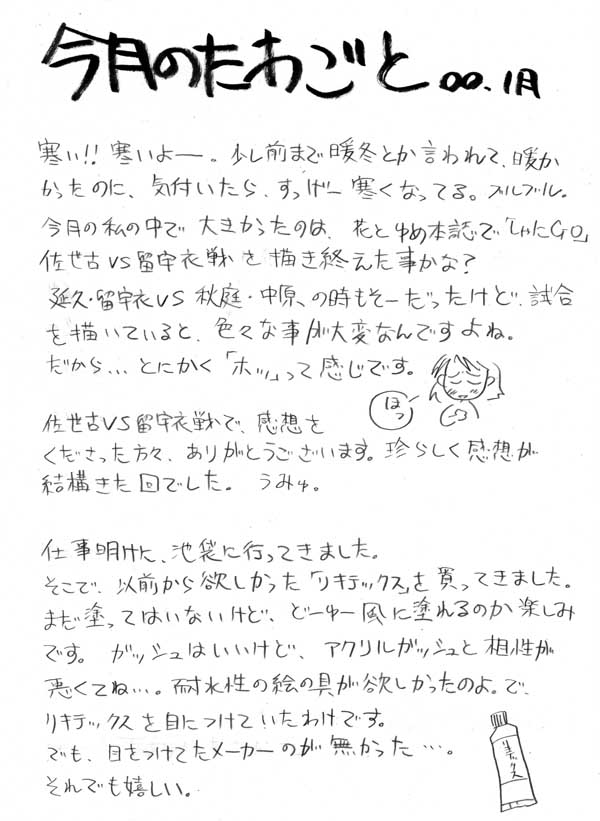 今月のたわごと 00.1月
寒い!! 寒いよー。少し前まで暖冬とか言われて、暖か
かったのに、気付いたら、すっげー寒くなってる。ブルブル。
今月の私の中で大きかったのは、花とゆめ本誌で「しゃにGO」
佐世古VS留宇衣戦を描き終えた事かな?
延久・留宇衣VS秋庭・中原、の時もそーだったけど、試合
を描いていると、色々な事が大変なんですよね。
だから… とにかく「ホッ」って感じです。
ほっ
佐世古VS留宇衣戦で、感想を
くださった方々、ありがとうございます。珍らしく感想が
結構きた回でした。 うみゅ。
仕事明けに、池袋に行ってきました。
そこで、以前から欲しかった「リキテックス」を買ってきました。
まだ塗ってはいないけど、どーゆー風に塗れるのか楽しみ
です。 ガッシュはいいけど、アクリルガッシュと相性が
悪くてね…。耐水性の絵の具が欲しかったのよ。で、
リキテックスを目につけていたわけです。
でも、目をつけてたメーカーのが無かった…。
それでも嬉しい。